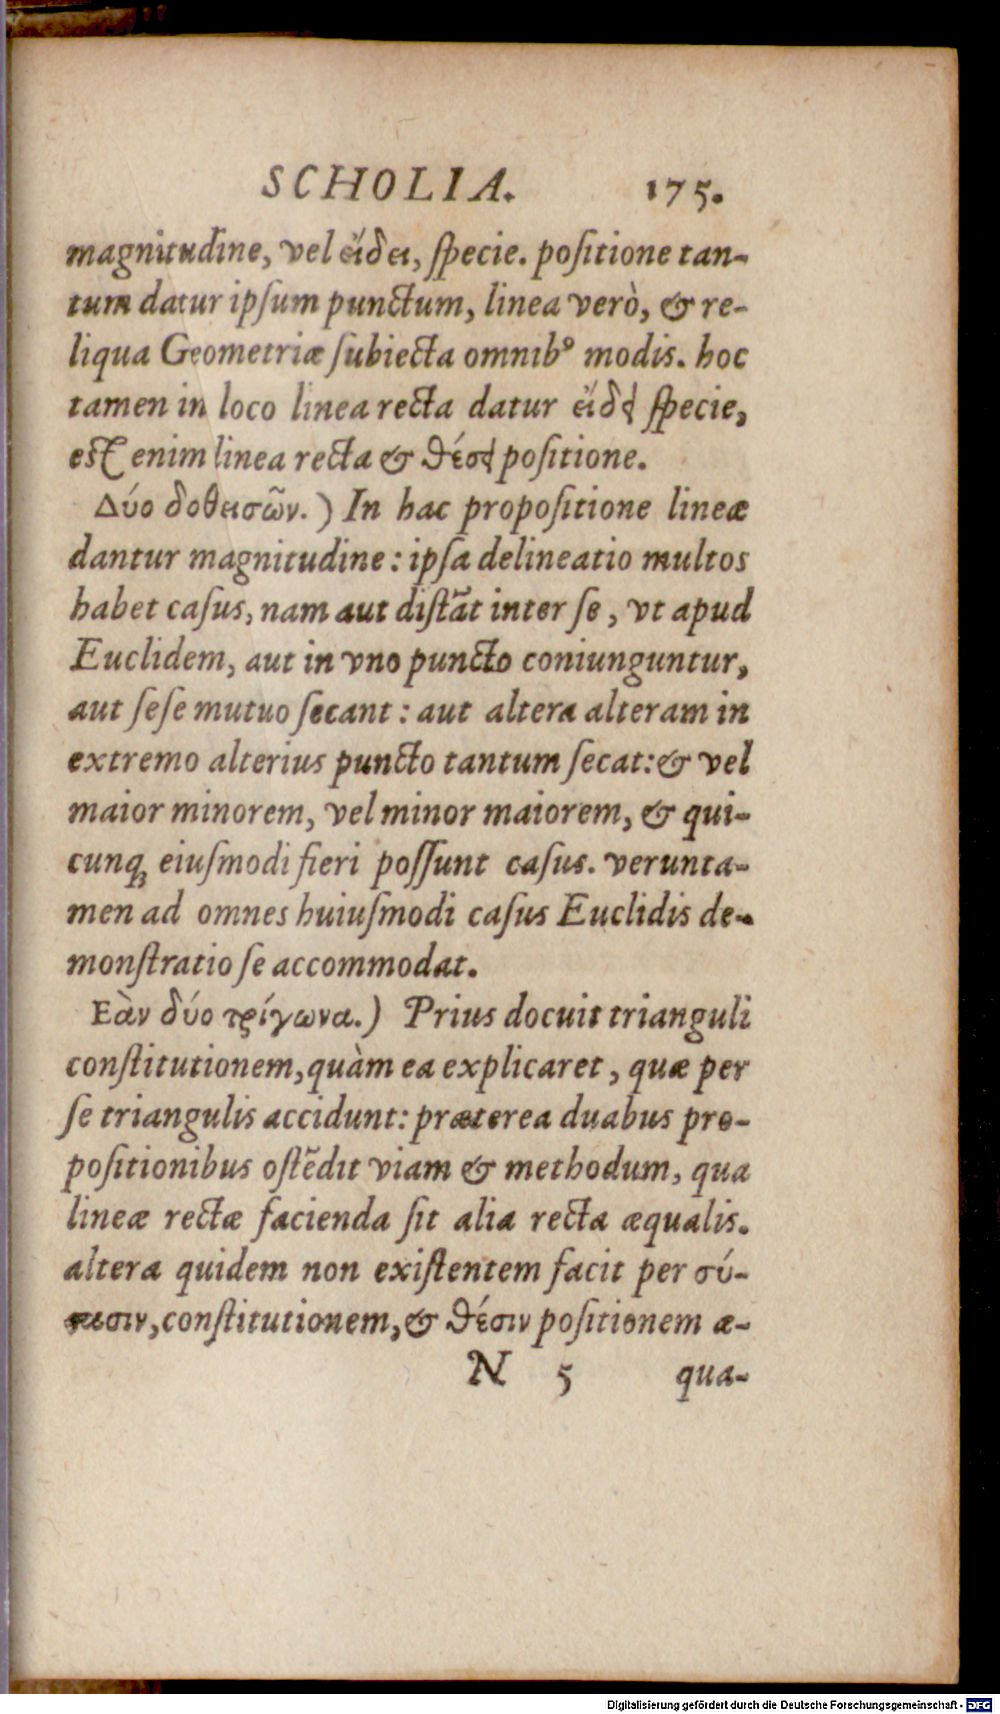 SCHOLIA. 175.
magnitudine, vel εἴδει, ſpecie. poſitione tan-
tum datur ipſum punctum, linea verò, & re-
liqua Geometriæ ſubiecta omnibꝰ modis. hoc
tamen in loco linea recta datur εἴδει ſpecie,
eſt enim linea recta & θέσει poſitione.
Δύο δοθεισῶν.) In hac propoſitione lineæ
dantur magnitudine: ipſa delineatio multos
habet caſus, nam aut diſtāt inter ſe, vt apud
Euclidem, aut in vno puncto coniunguntur,
aut ſeſe mutuo ſecant: aut altera alteram in
extremo alterius puncto tantum ſecat: & vel
maior minorem, vel minor maiorem, & qui-
cunqꝫ eiuſmodi fieri poſſunt caſus. verunta-
men ad omnes huiuſmodi caſus Euclidis de-
monſtratio ſe accommodat.
Εὰν δύο τρίγωνα.) Prius docuit trianguli
conſtitutionem, quàm ea explicaret, quæ per
ſe triangulis accidunt: præterea duabus pro-
poſitionibus oſtēdit viam & methodum, qua
lineæ rectæ facienda ſit alia recta æqualis.
altera quidem non exiſtentem facit per σύ-
conſtitutionem, & θέσιν poſitionem æ-
N 5 qua-
Digitalisierung gefördert durch die Deutsche Forschungsgemeinschaft - DFG